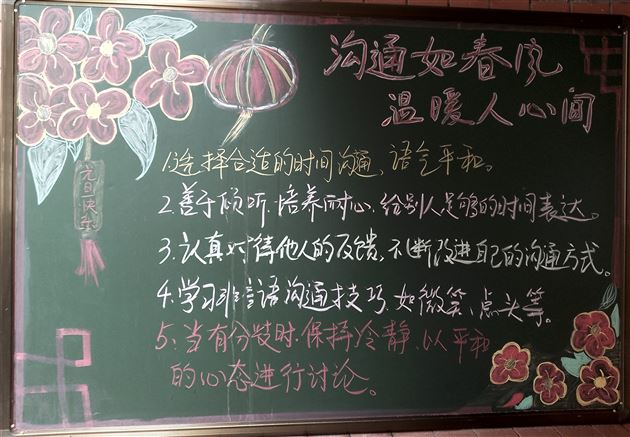 沟通如春风
温暖人心间
元旦快乐
1.选择合适的时间沟通、语气平和。
2.善于倾听.培养耐心.给别人足够的时间表达。
3.认真对待他人的反馈,不断改进自己的沟通方式。
4.学习非言语沟通技巧,如微笑、点头等。
5.当有分歧时.保持冷静.以平和
的心态进行讨论。